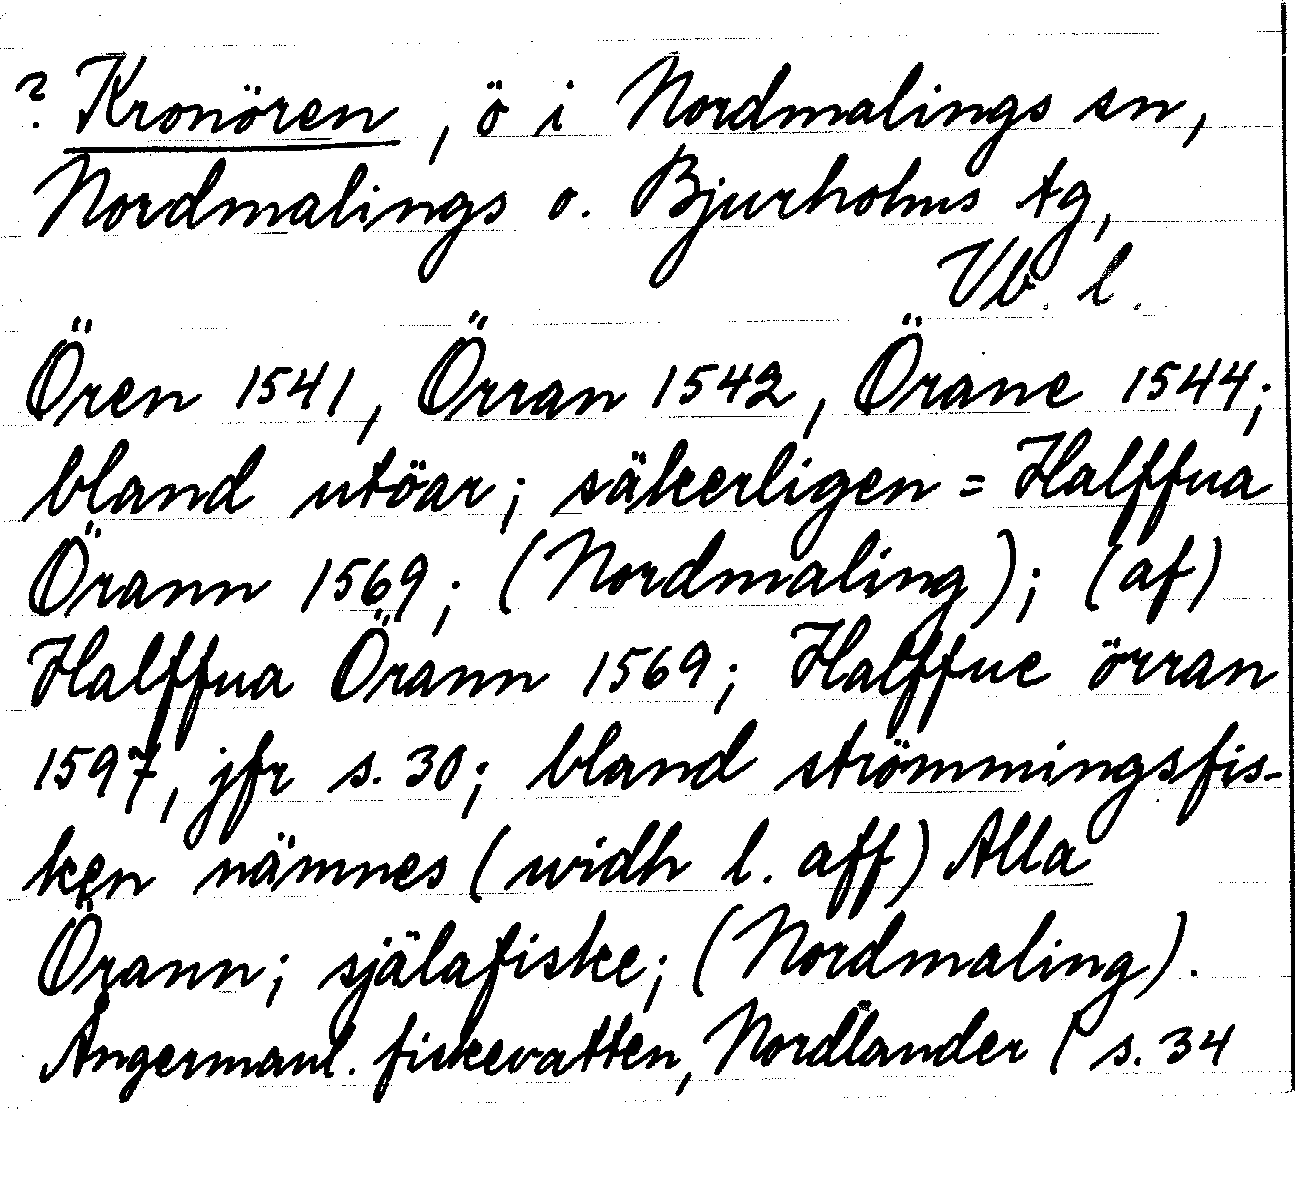 ? Kronören, ö i Nordmalings sn,
Nordmalings o. Bjurholms tg,
Vb. l.
Ören 1541, Örran 1542, Örane 1544;
bland utöar; säkerligen = Halffua
Örann 1569; (Nordmaling); (af)
Halffua Örann 1569; Halffue örran
1597, jfr s. 30; bland strömmingsfis-
ken nämnes (widh l. aff) Alla
Örann; själafiske; (Nordmaling).
Ångermanl. fiskevatten, Nordlander I s. 34